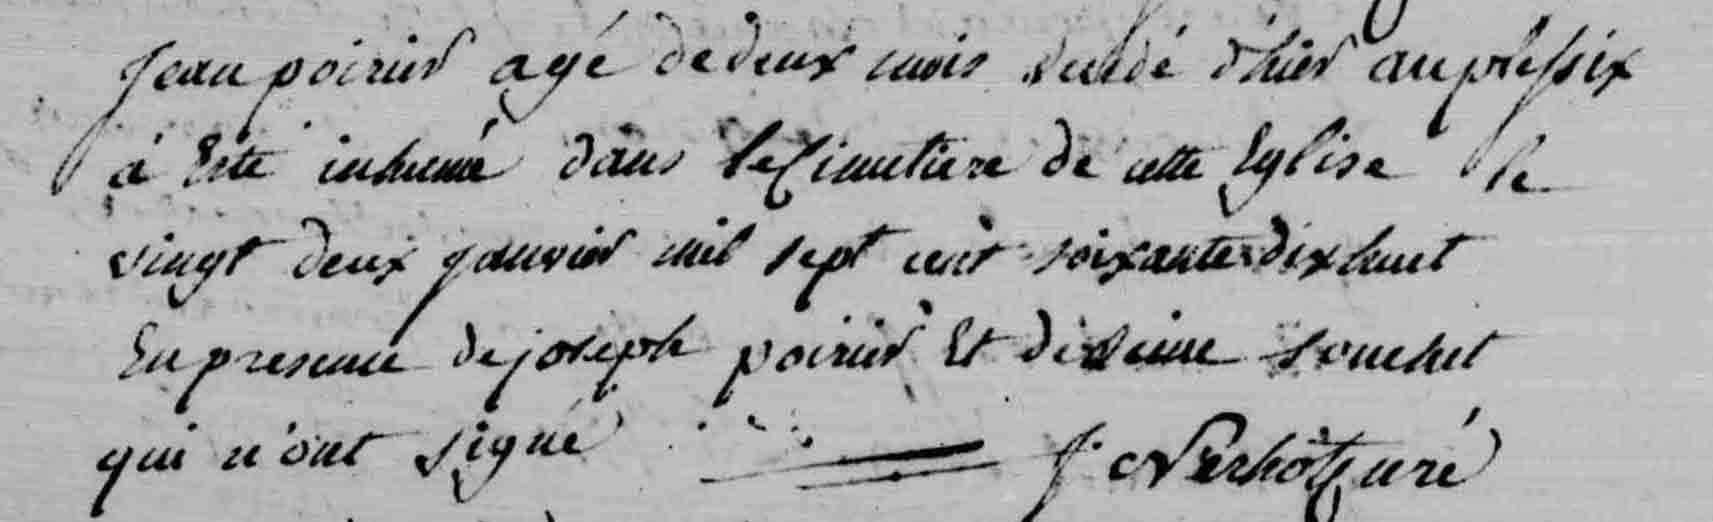 Jean poirier agé de deux mois décédé d'hier au plessix
à Eté inhumé dans le Cimetiere de cette Eglise le
vingt deux janvier mil sept cent soixante dix huit
En presence de joseph poirier Et de souchet
qui n'ont signé J. curé